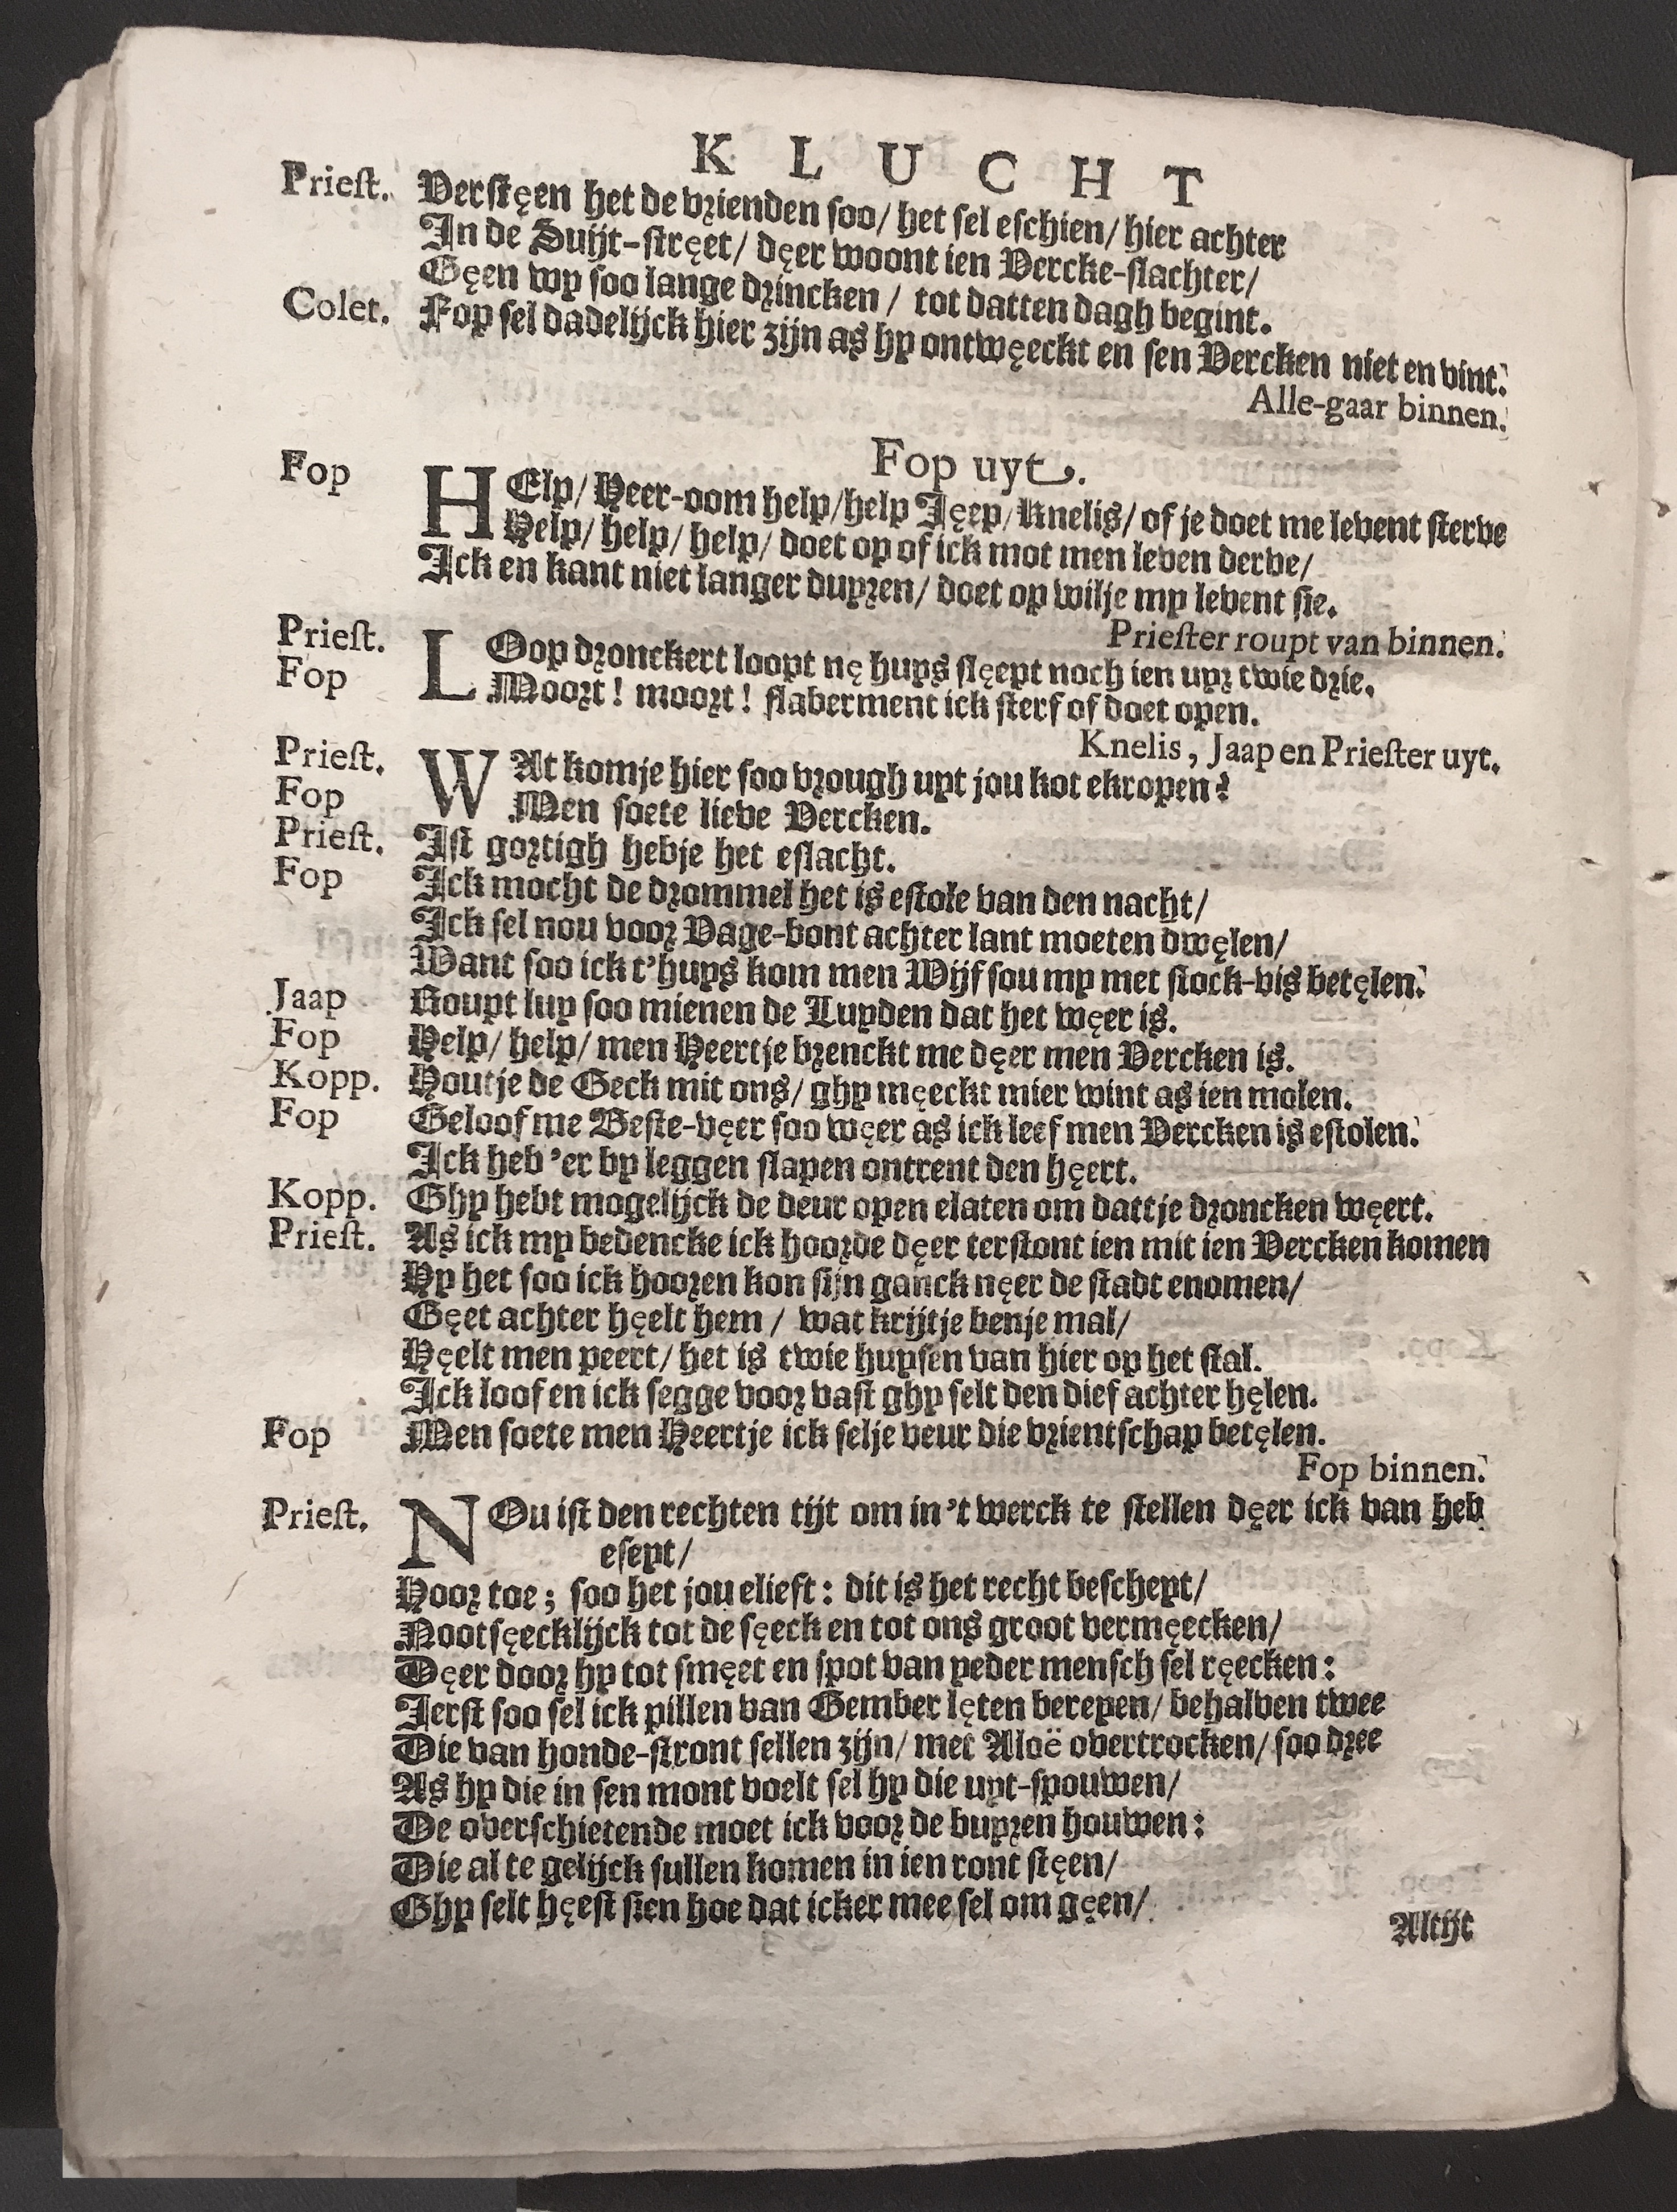 KLUCHT
Priest. Verstęen het de vrienden soo/ het sel eschien/ hier achter
In de Suijt-stręet/ dęer woont ien Vercke-slachter/
Gęen wy soo lange drincken/ tot datten dagh begint.
Colet. Fop sel dadelijck hier zijn as hy ontwęeckt en sen Vercken niet en vint.
Alle-gaar binnen.
Fop uyt.
Fop HElp/ Heer-oom help/help Jęep/Knelis/ of je doet me levent sterve
Help/ help/ help/ doet op of ick mot men leven derve/
Ick en kant niet langer duyren/ doet op wilje my levent sie.
Priester roupt van binnen.
Priest. LOop dronckert loopt nę huys slęept noch ien uyr twie drie.
Fop Moort! moort! slaberment ick sterf of doet open.
Knelis, Jaap en Priester uyt.
Priest. WAt komje hier soo vrough uyt jou kot ekropen?
Fop Men soete lieve Vercken.
Priest. Ist gortigh hebje het eslacht.
Fop Ick mocht de drommel het is estole van den nacht/
Ick sel nou voor Vage-bont achter lant moeten dwęlen/
Want soo ick t'huys kom men Wijf sou my met stock-vis betęlen.
Jaap Roupt luy soo mienen de Luyden dat het węer is.
Fop Help/ help/ men Heertje brenckt me dęer men Vercken is.
Kopp. Houtje de Geck mit ons/ ghy męeckt mier wint as ien molen.
Fop Geloof me Beste-vęer soo węer as ick leef men Vercken is estolen.
Ick heb 'er by leggen slapen ontrent den hęert.
Kopp. Ghy hebt mogelijck de deur open elaten om dattje droncken węert.
Priest. As ick my bedencke ick hoorde dęer terstont ien mit ien Vercken komen
Hy het soo ick hooren kon sijn ganck nęer de stadt enomen/
Gęet achter hęelt hem/ wat krijtje benje mal/
Hęelt men peert/ het is twie huysen van hier op het stal.
Ick loof en ick segge voor vast ghy selt den dief achter hęlen.
Fop Men soete men Heertje ick selje veur die vrientschap betęlen.
Fop binnen.
Priest. NOu ist den rechten tijt om in't werck te stellen dęer ick van heb
eseyt/
Hoor toe; soo het jou elieft: dit is het recht bescheyt/
Nootsęecklijck tot de sęeck en tot ons groot vermęecken/
Dęer door hy tot smęet en spot van yeder mensch sel ręecken:
Jerst soo sel ick pillen van Gember lęten bereyen/ behalven twee
Die van honde-stront sellen zijn/ met Aloë overtrocken/ soo dree
As hy die in sen mont voelt sel hy die uyt-spouwen/
De overschietende moet ick voor de buyren houwen:
Die al te gelijck sullen komen in ien ront stęen/
Ghy selt hęest sien hoe dat icker mee sel om gęen/
Altijt